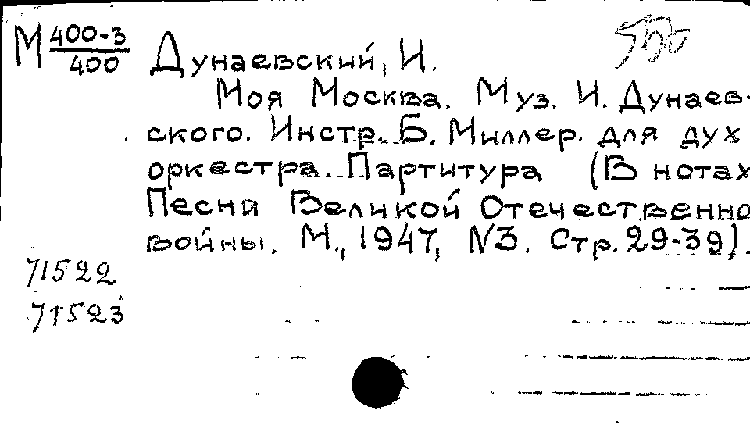 М 400-3/400 Дунаевский, И.
Моя Москва. Муз. И. Дунаев-
ского. Инстр. Б. Миллер. для дух
оркестра. Партитура (В нотах
Песни Великой Отечественно
войны. М., 1947, N3. Стр. 29-39).
71522
71523